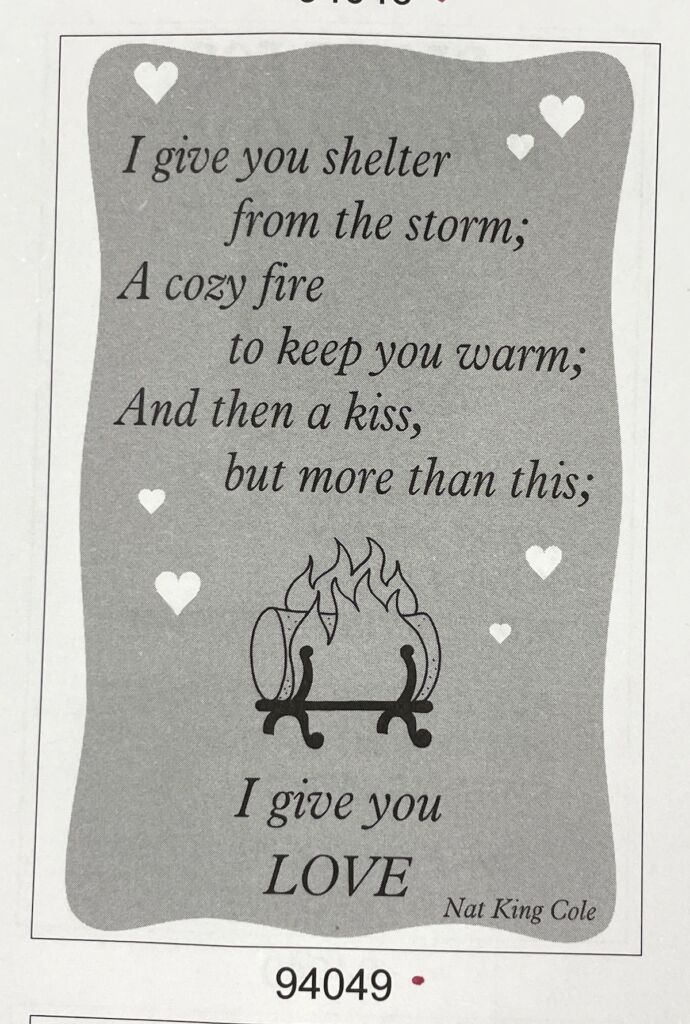 I give you shelter
from the storm;
A cozy fire
to keep you warm;
And then a kiss,
but more than this;
I give you
LOVE
Nat King Cole
94049